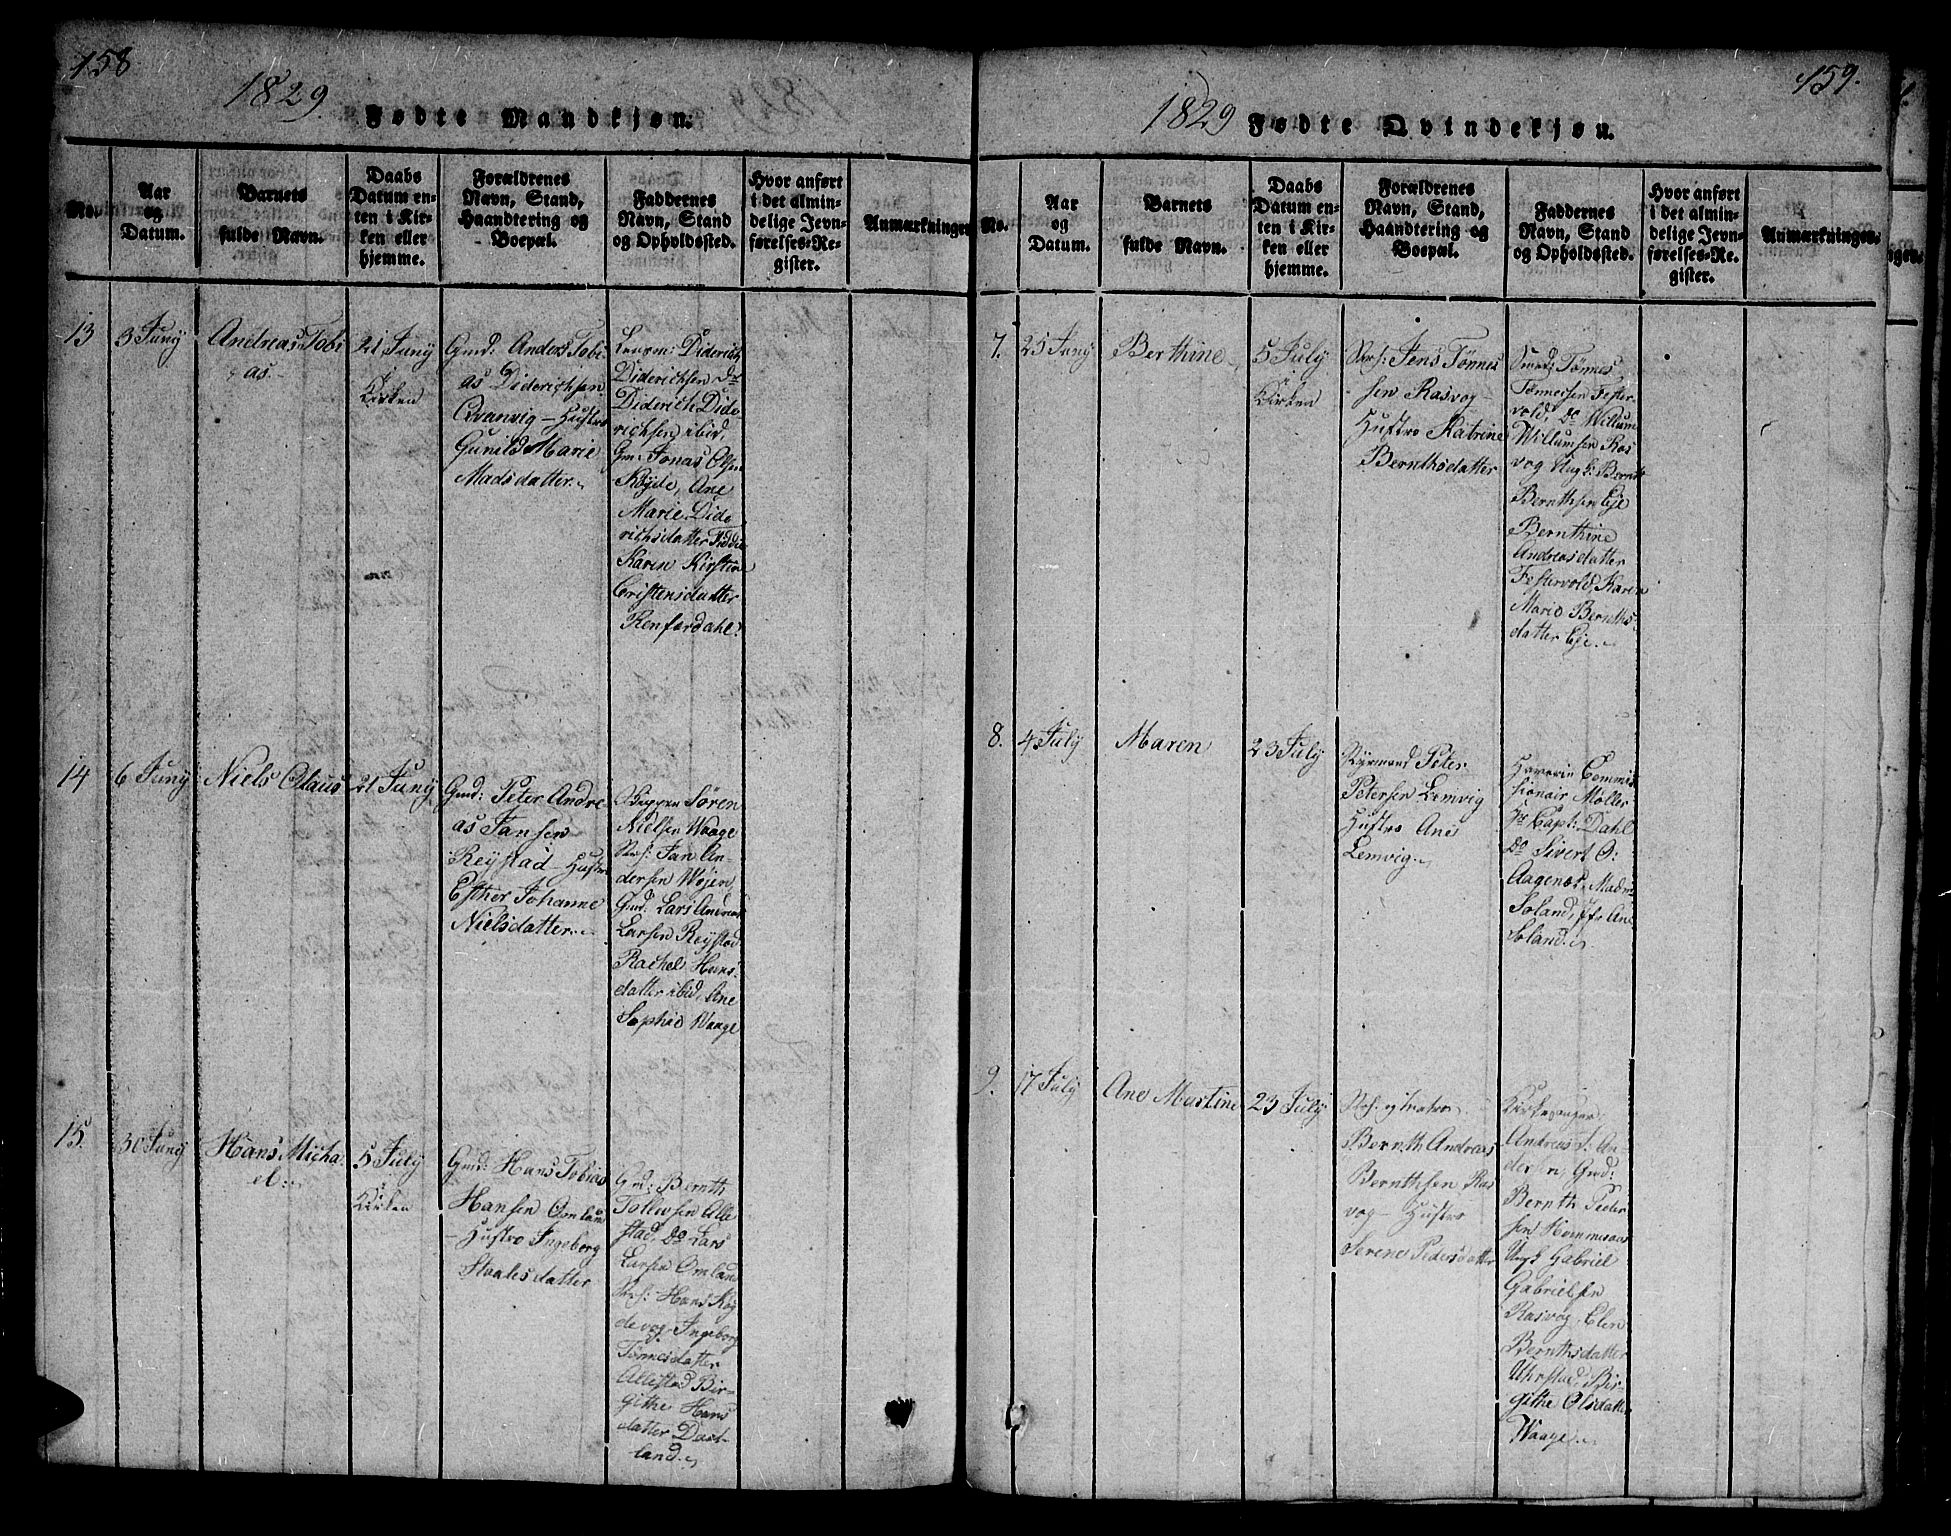 158
1829.
Fødte Mandkjøn.
No.
Aar
og
Datum.
Barnets
fulde Navn.
Daabs
Datum en-
ten i Kir-
ken eller
hjemme.
Forældrenes
Navn, Stand,
Haandtering og
Boepæl.
Faddernes
Navn, Stand
og Opholdssted.
Hvor anført
i det almin-
delige Jevn-
førelses-Re-
gister.
Anmærkninger.
13
3 Juny
Andreas Tobi
as.
21 Juny
Kirken
Gmd: Anders Tobi-
as Diderichsen
Qvanvig – Hustro
Gunild Marie
Madsdatter.
Diderich
Diderichsen do
Diderich Dide
richsen ibid,
Gm: Jonas Olsen
Røyde, Ane
Marie Dide
richsdatter
Karen Kirstine
Cristensdatter
Renfærdahl.
14
6 Juny
Niels Olaus
21 Juny
Gmd: Peter Andre
as Jansen
Reystad Hustro
Esther Johanne
Nielsdatter.
Søren
Nielsen Waage
Jan An-
dersen Wøien,
Gmd: Lars Andreas
Larsen Reystad
Rachel Hans
datter ibid, Ane
Sophie Waage
15.
30 Juny
Hans Micha-
el.
5 July
Kirken
Gmd: Hans Tobias
Hansen Omland
– Hustro Ingeborg
Staalesdatter
Gmd: Bernth
Tollevsen Alle
stad. Do Lars
Larsen Omland
Hans Røy
devog. Ingeborg
Tønnesdatter
Allestad Bir-
githe Hans
datter Dast-
land.
159.
1829
Fødte Qvindekjøn.
No.
Aar
og
Datum.
Barnets
fulde Navn.
Daabs
Datum en-
ten i Kir-
ken eller
hjemme.
Forældrenes
Navn, Stand,
Haandtering og
Boepæl.
Faddernes
Navn, Stand
og Opholdssted.
Hvor anført
i det almin-
delige Jevn-
førelses-Re-
gister.
Anmærkninger.
7.
25 Juny
Berthine
5 July
Kirken
Jens Tønnes
sen Rasvog –
Hustro Katrine
Bernthsdatter
Tønnes
Tønnessen Fester
vold, do Willum
Willumsen Ras
vog Ungk: Bernth
Bernthsen Eje
Bernthine
Andreasdatter
Festervold, Karen
Marie Bernths-
datter Eje.
8.
4 July
Maren
23 July
Peter
Petersen Lemvig
Hustro Ane
Lemvig.
Havarie Commis
sionair Møller
Hr Capt: Dahl
Do Sivert O:
Aagenæs, Madm
Soland, Jfr Ane
Soland.
9.
17 July
Ane Martine
23 July
Bernth Andreas
Bernthsen Ras
vog – Hustro
Serene Pedersdatter
Kirkesanger
Andreas J. An-
dersen, Gmd:
Bernth Peder
sen Hommesaas
Ungk Gabriel
Gabrielsen
Rasvog, Elen
Bernthsdatter
Uhrstad, Bir-
githe Olsdatter
Waage.